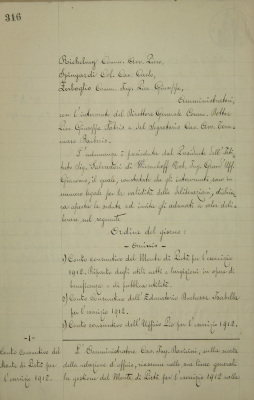 316
Comm. Avv. Pino,
Spingardi Col. Cav. Carlo,
Comm. Ing. Giuseppe,
Amministratori,
con l'intervento del Direttore Generale Comm. Dottor
Giuseppe Fabris e del Segretario Cav. Avv.
L'adunanza è presieduta dal Presidente dell'Isti-
tuto Sig. Salvadori di Wiesenhoff Nob. Ing. Grand'Uff.
Giacomo, il quale, constatato che gli intervenuti sono in
numero legale per la validità delle deliberazioni, dichia-
ra aperta la seduta ed invita gli adunati a voler deli-
berare sul seguente
Ordine del giorno:
1) Conto consuntivo del Monte di Pietà per l'esercizio
1912. Riparto degli utili netti e largizioni in opere di
beneficenza e di pubblica utilità.
2) Conto consuntivo dell'Educatorio Duchessa Isabella
per l'esercizio 1912.
3) Conto consuntivo dell'Ufficio Pio per l'esercizio 1912.
- 1 -
Conto consuntivo del
Monte di Pietà per
l'esercizio 1912.
L'Amministratore Cav. Ing. sulla scorta
della relazione d'ufficio, riassume nelle sue linee generali
la gestione del Monte di Pietà per l'esercizio 1912